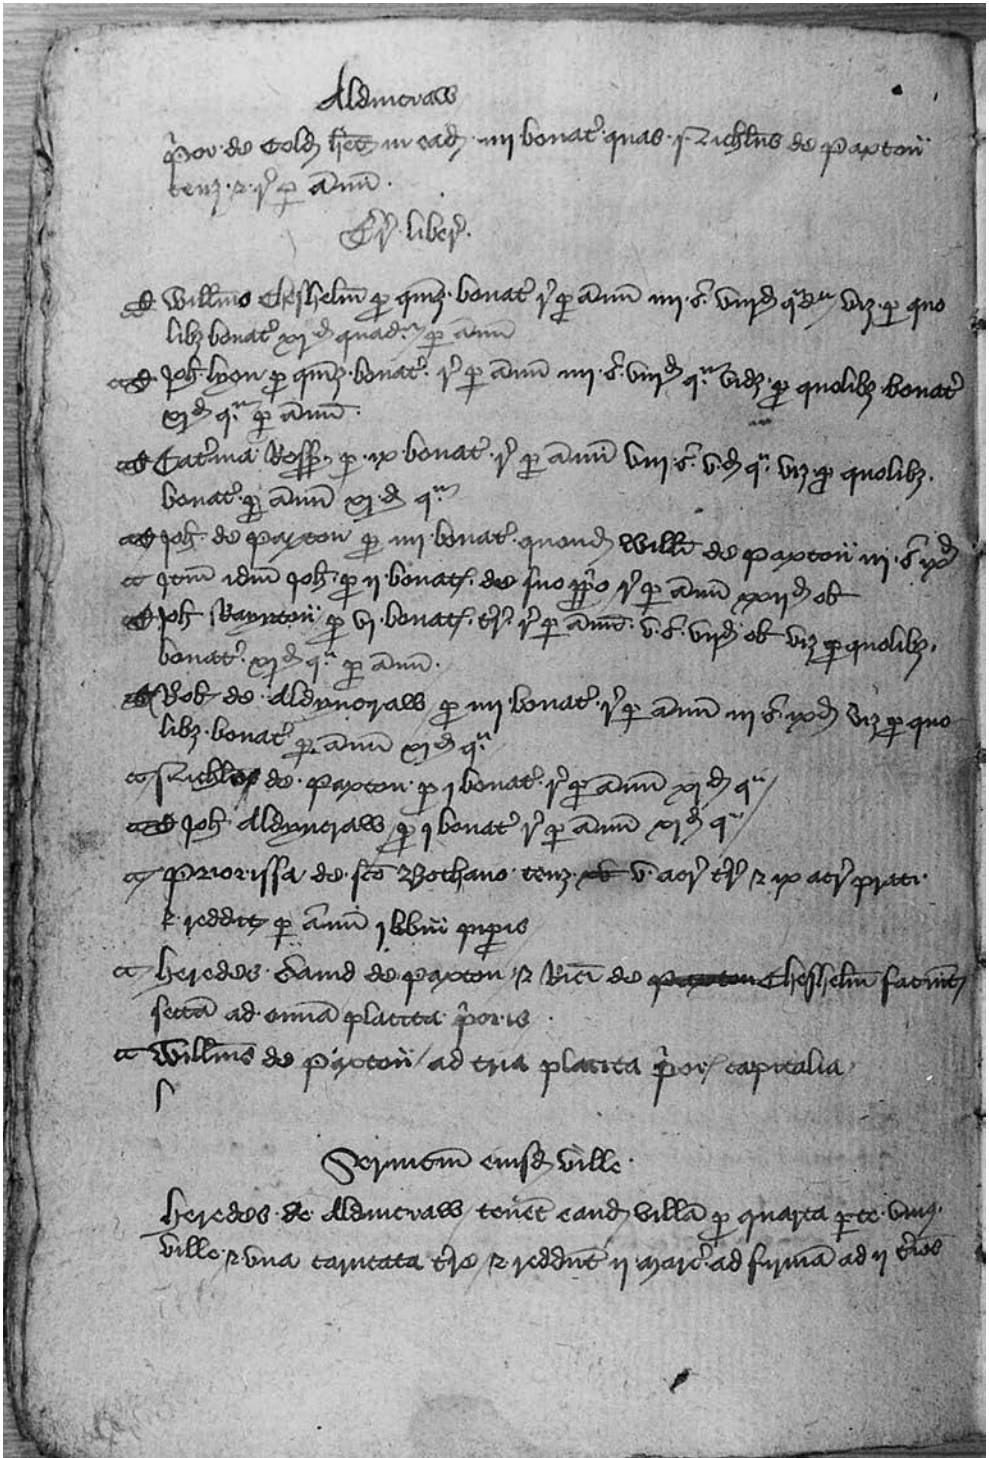 Aldincraw
P'or de Cold h'et in ead iiii bovat' quas Nichl'us de Paxton
tenz & r' p ann'
Tr' liber'
Will'ms Cheshelm p quinz bovat' r' p annu iiii s' viii d q'a viz p quo
libz bovat' xi d quad'a p annu
Joh Lyon p quinz bovat' r' p annu iiii s' viii d q'a videz p quolibz bovat'
xi d q'a p annu
Cat'ina Ross p ix bovat' r' p annu viii s' v d q'a viz p quolibz
bovat' p annu xi d q'a
Joh de Paxton p iiii bovat' quond Will'i de Paxton iii s' ix d
Itm idm Joh p ii bovat' de suo pp'o r' p annu xxii d ob
Joh p vi bovat' t're r' p annu v s' vii d ob viz p quolibz
bovat' xi d q'a p annu
Rob de Aldyncraw p iiii bovat' r' p annu iii s' ix d viz p quo
libz bovat' p annu xi d q'a
Nichl'us de Paxton p i bovat' r' p annu xi d q'a
Joh Aldyncraw p i bovat' r' p annu xi d q'a
Priorissa de sco Bothano tenz v acr' t're & ix acr' prati
& reddit p annu i libm pip'is
Heredes David de Paxton & Rici de Cheshelm faciunt
sectam ad omnia placita p'oris
Will'ms de Paxton ad tria placita p'oris capitalia
Servicium eiusd ville
Heredes de Aldincraw tenet eand villa p quarta p'te unius
ville & una carucata t're & reddunt ii marc' ad firma ad ii t'ios